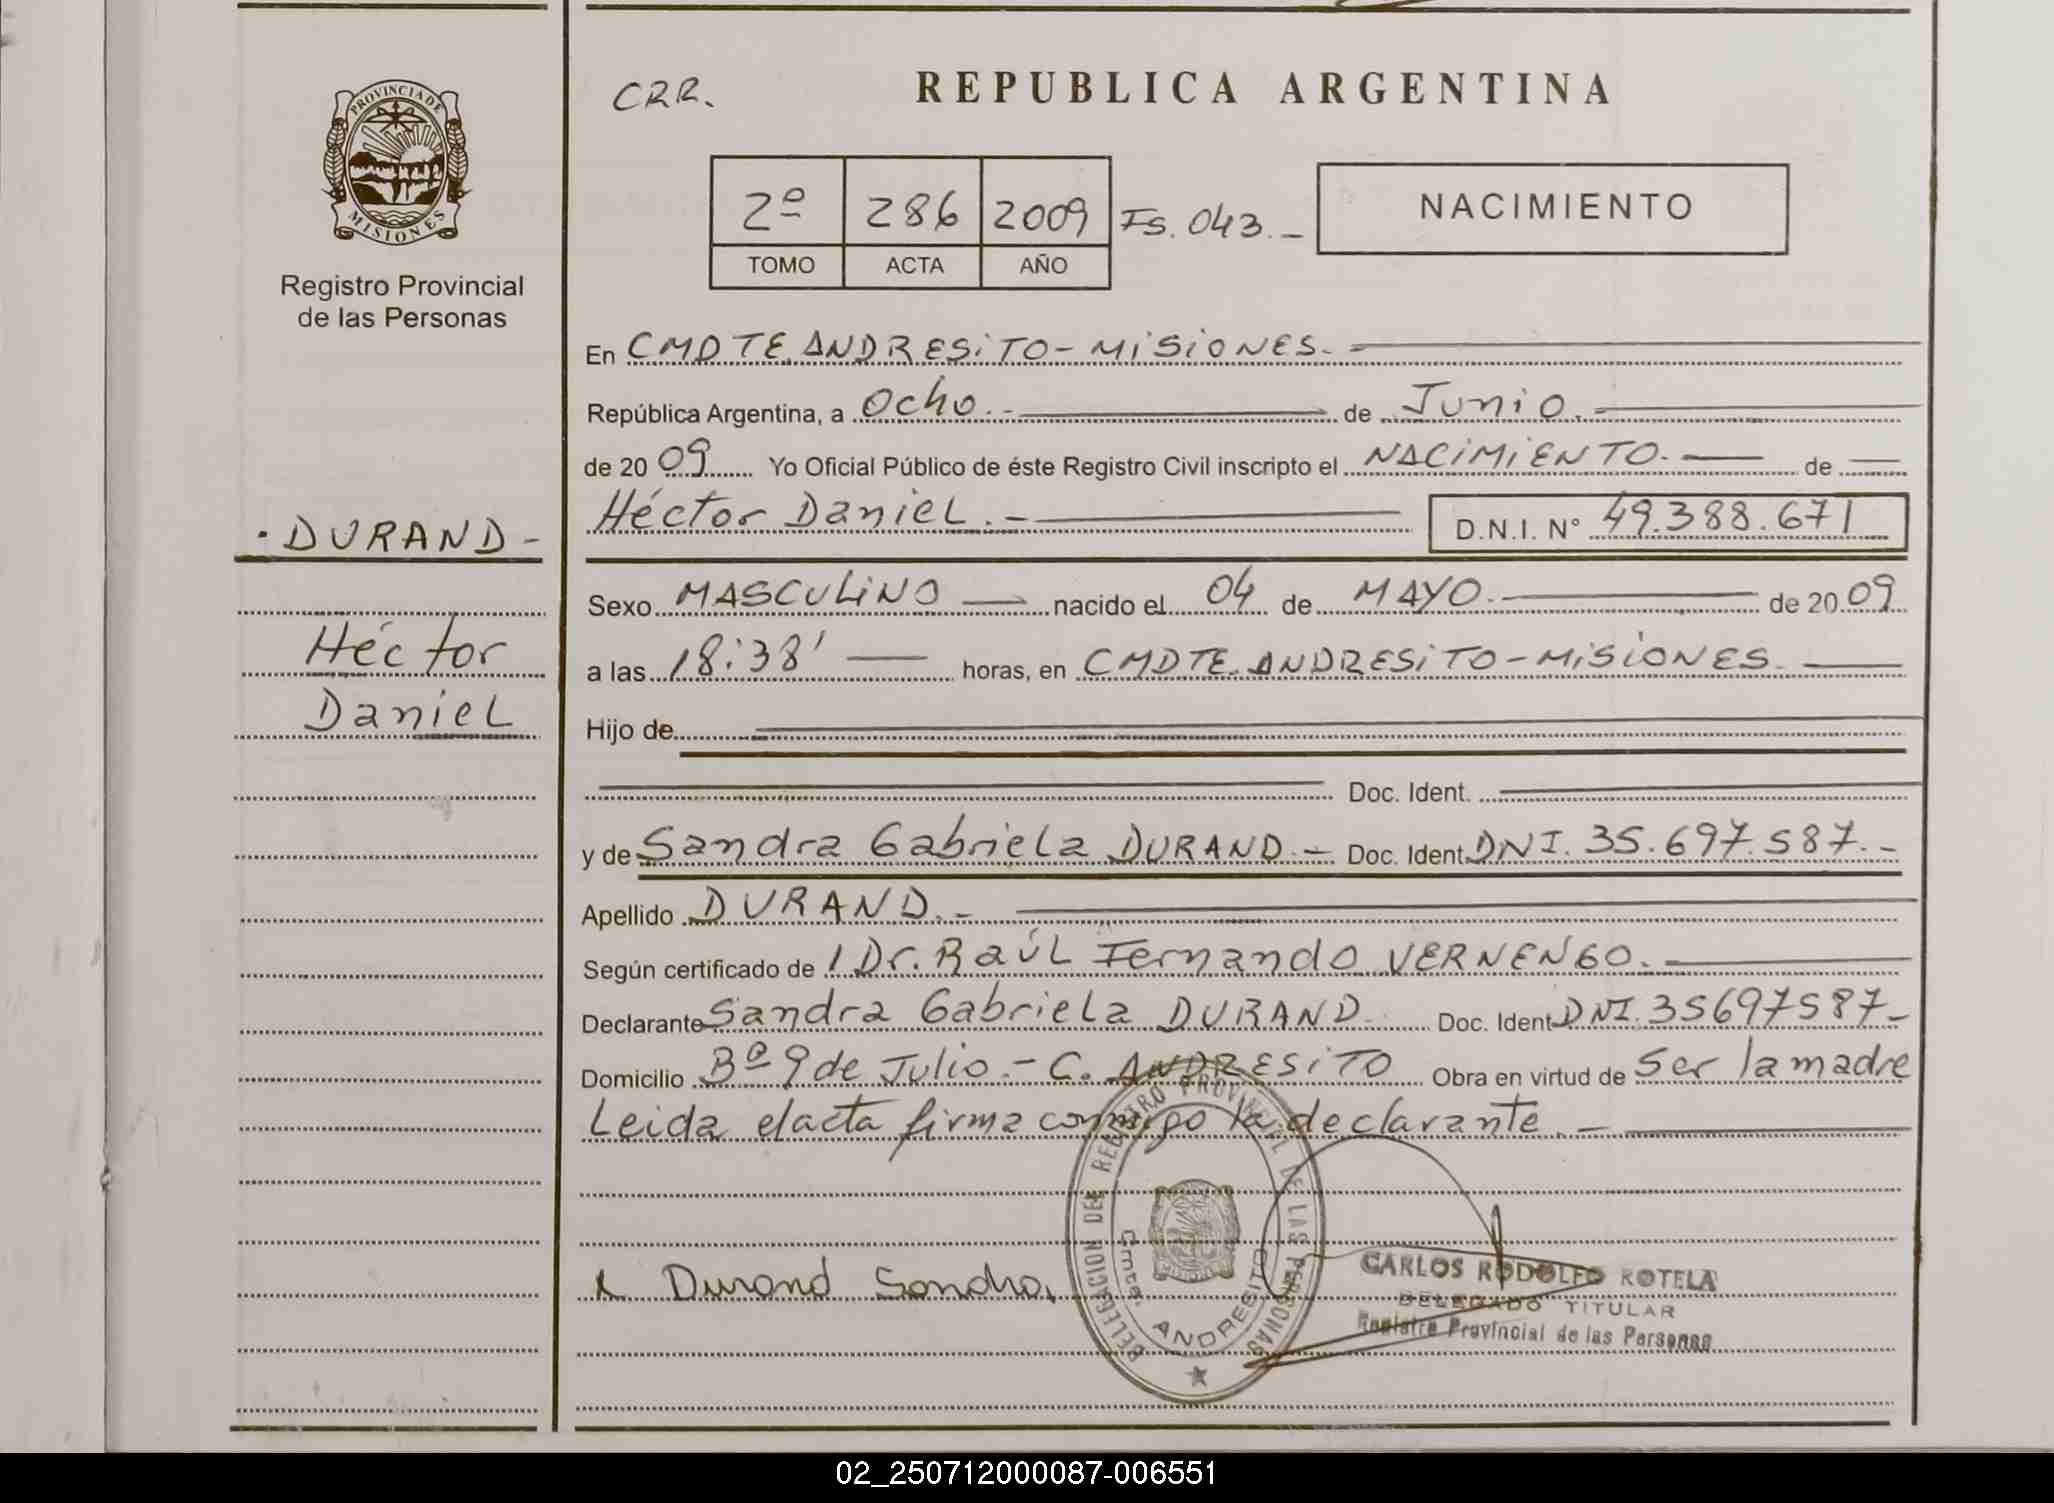 PROVINCIA DE
MISIONES
Registro Provincial
de las Personas
· DURAND -
Héctor
Daniel
CRR.
REPUBLICA ARGENTINA
2º 286 2009 Fs. 043. -
TOMO ACTA AÑO
NACIMIENTO
En CMDTE. ANDRESITO - MISIONES. -
República Argentina, a Ocho. - de Junio. -
de 20 09 Yo Oficial Público de éste Registro Civil inscripto el NACIMIENTO. - de -
Héctor Daniel. - D.N.I. Nº 49.388.671
Sexo MASCULINO - nacido el 04 de MAYO. - de 20 09
a las 18:38' - horas, en CMDTE. ANDRESITO - MISIONES. -
Hijo de
Doc. Ident.
y de Sandra Gabriela DURAND. - Doc. Ident DNI. 35.697.587. -
Apellido DURAND. -
Según certificado de / Dr. Raúl Fernando VERNENGO. -
Declarante Sandra Gabriela DURAND. Doc. Ident DNI. 35697587 -
Domicilio Bº 9 de Julio. - C. ANDRESITO Obra en virtud de Ser la madre
Leida el acta firma conmigo la declarante. -
DELEGACION DEL REGISTRO PROVINCIAL DE LAS PERSONAS
Cmte. ANDRESITO
Durand Sandra
CARLOS RODOLFO ROTELA
DELEGADO TITULAR
Registro Provincial de las Personas
02_250712000087-006551